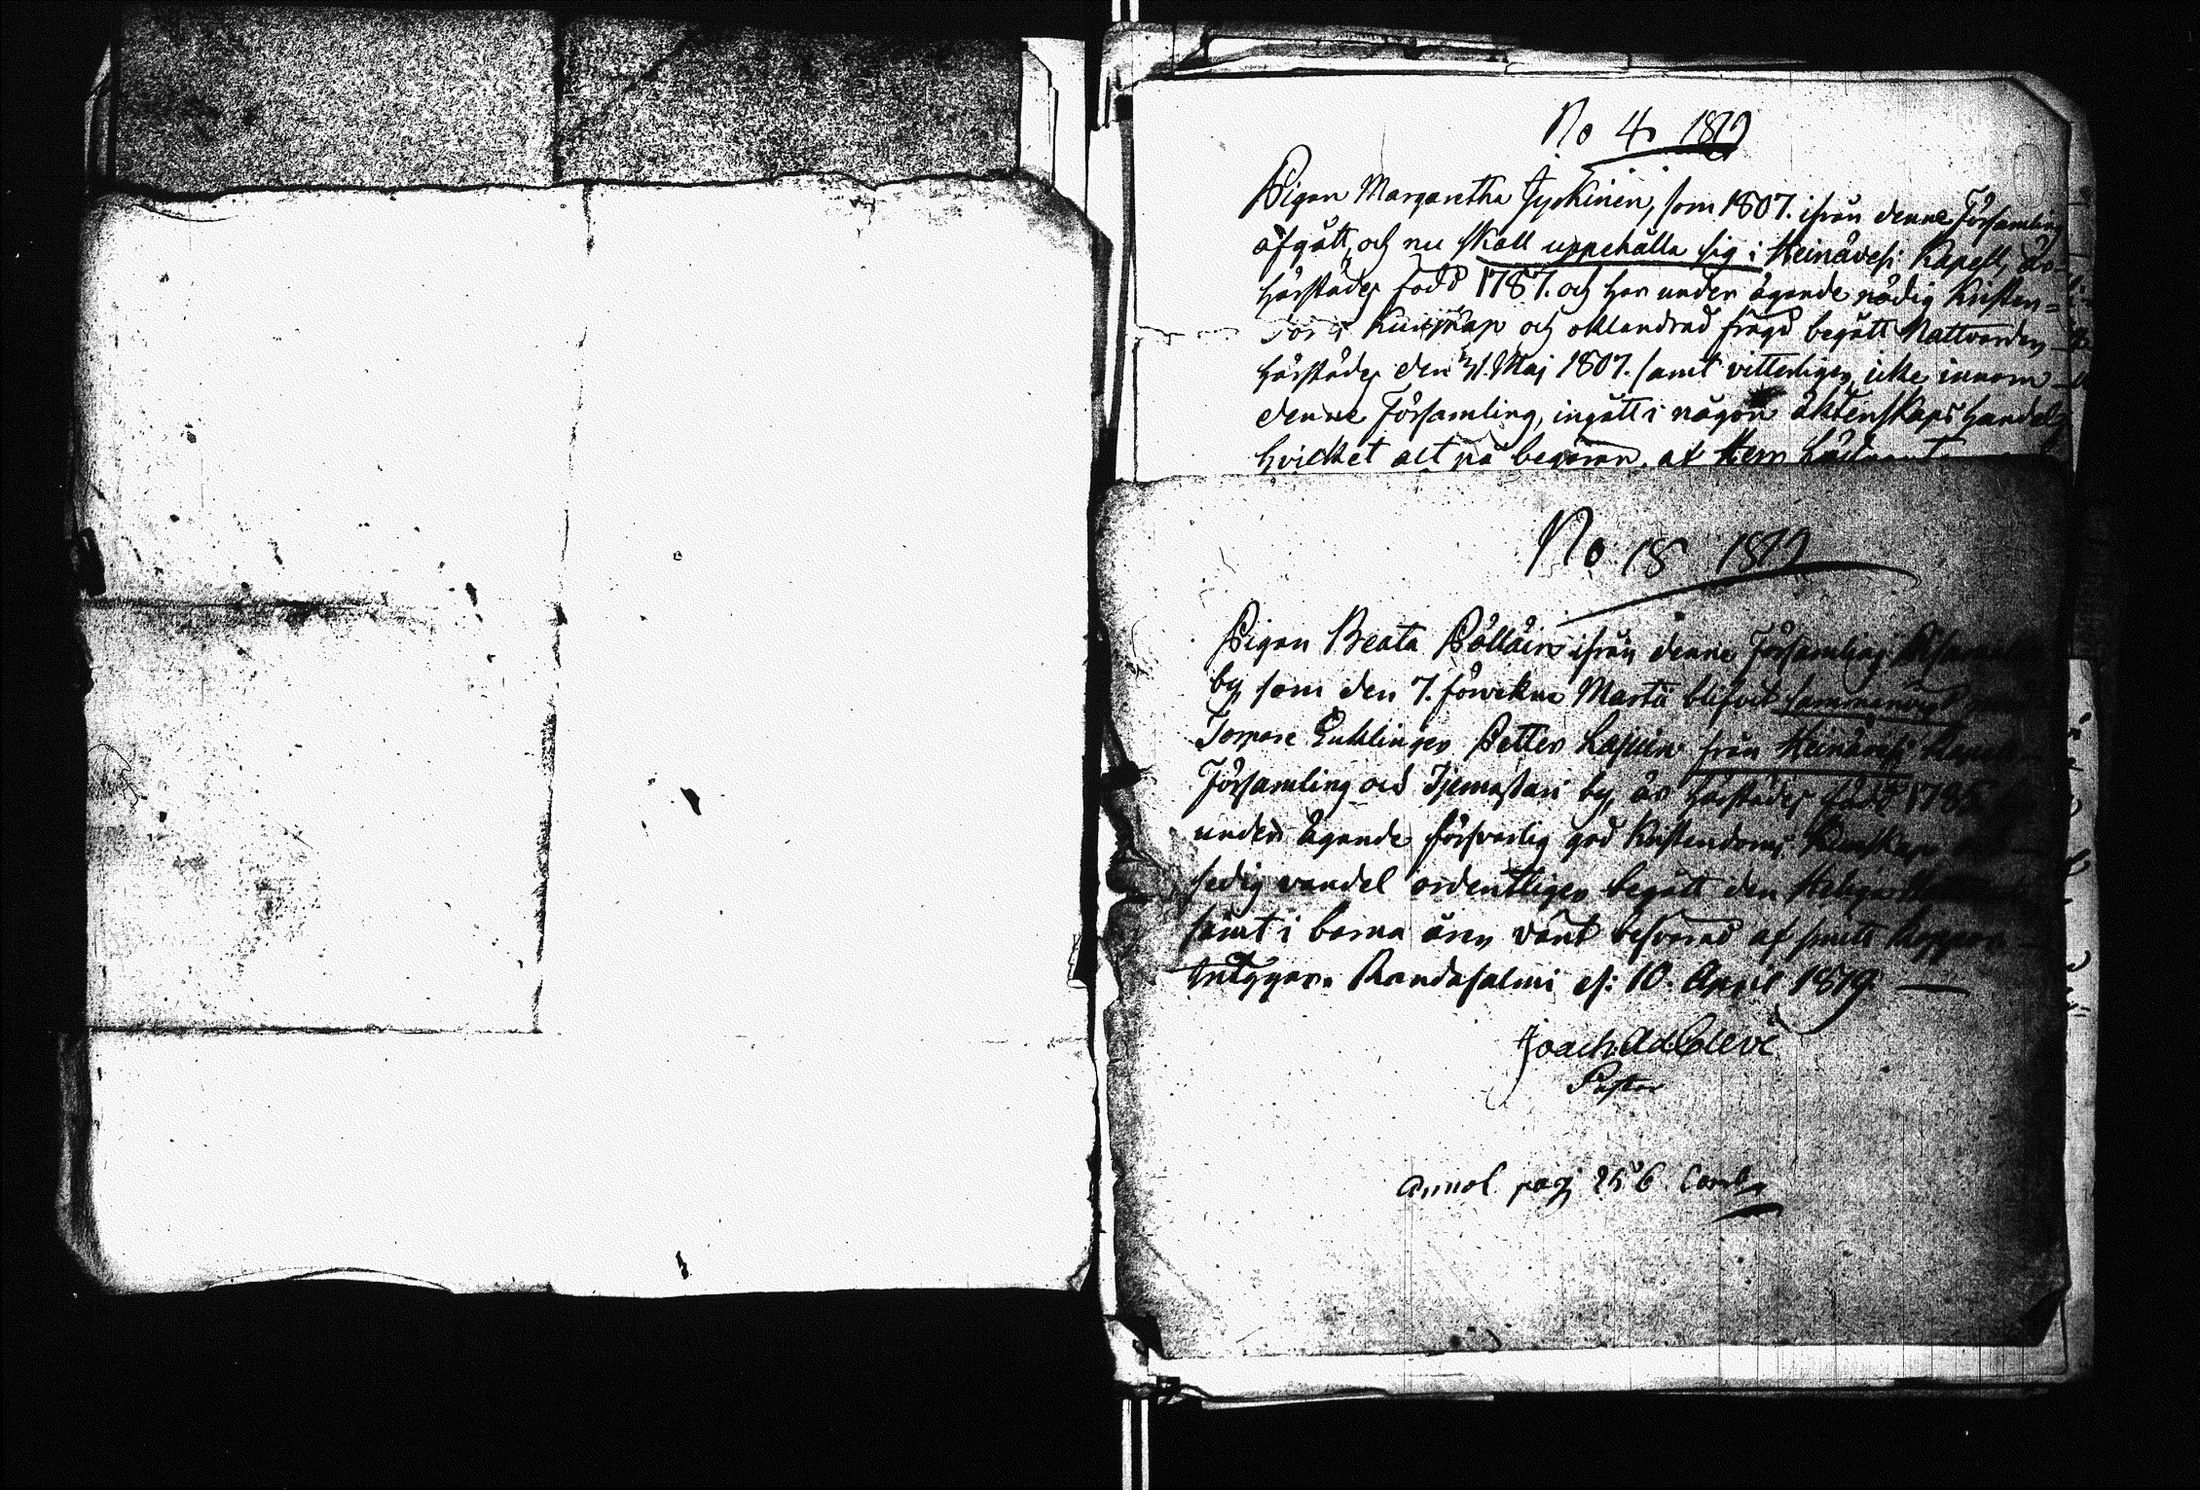 No 4 1819
Pigan Margaretha Jyskinen, som 1807. ifrån denne Församling
afgått, och nu skall uppehålla sig i Heinävesi Kapell, är
härstädes född 1787. och har under ägande nödig Kristen=
doms Kunskap och oklandrad frägd begått Nattvarden
härstädes den 31. Maj 1807. samt vitterligen icke innom
denne Församling, ingått i någon äktenskaps handel,
hvilket alt på begäran, af Herr
No 18 1819
Pigan Beata Pöllöin ifrån denne Församling
by som den 7. förvekne Martii blifvit sammanvigd
Torpare Enklingen Petter Lapein från Heinävesi
Församling och by, är härstädes född 178
under ägande försvarlig god Kristendoms Kunskap
sedig vandel ordentligen begått den Heliga
samt i barna åren varit besvärad af smitt koppor
intygar. Randasalmi d: 10. April 1819.
Joach. Ad. Cleve
Pastor
Annot. pag 256. Comb.